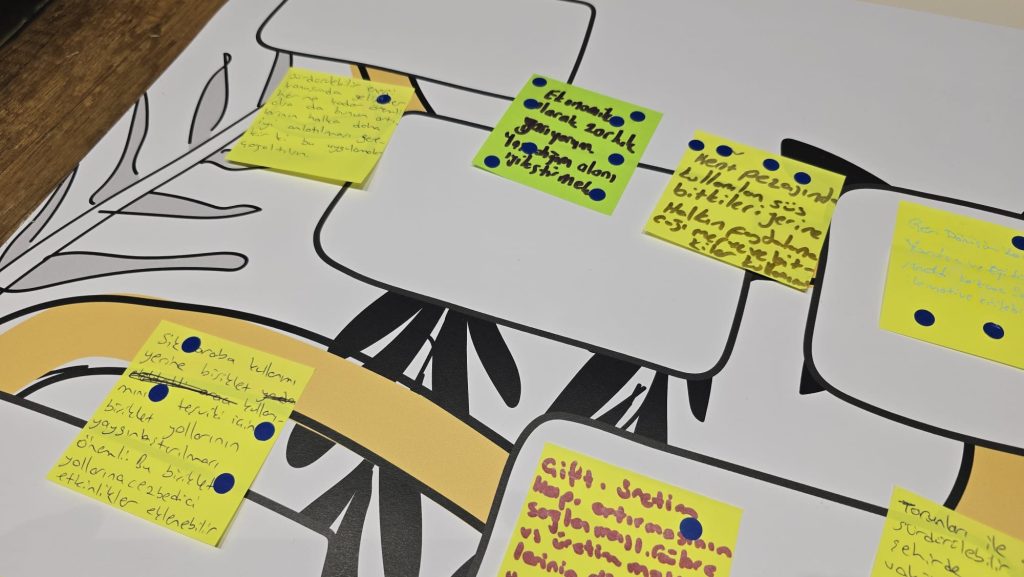 sürdürebilir enerji
konusunda gelişmeler
her ne kadar önemli
olsa da bunun artı-
larının halka daha
iyi anlatılması ger-
bu uygulamalar
çoğaltılsın.
Ekonomik
olarak zorluk
yaşıyorum
Yaşadığım alanı
iyileştirmek
Kent pezajında
kullanılan süs
bitkileri yerine
Halkın faydalana-
cağı meyve bit-
kiler kullanımı
Geri Dönüşüm
Yardım ve Eğitim
Sık araba kullanımı
yerine bisiklet
kullanı-
mını teşviki için
bisiklet yollarının
yaygınlaştırılması
önemli. Bu bisiklet
yollarına cezbedici
etkinlikler eklenebilir
Çift. üretim
kap. artırmasının
sağlanması. Gübre
ve üretim mal
lerinin
Torunları ile
sürdürülebilir
şehirde